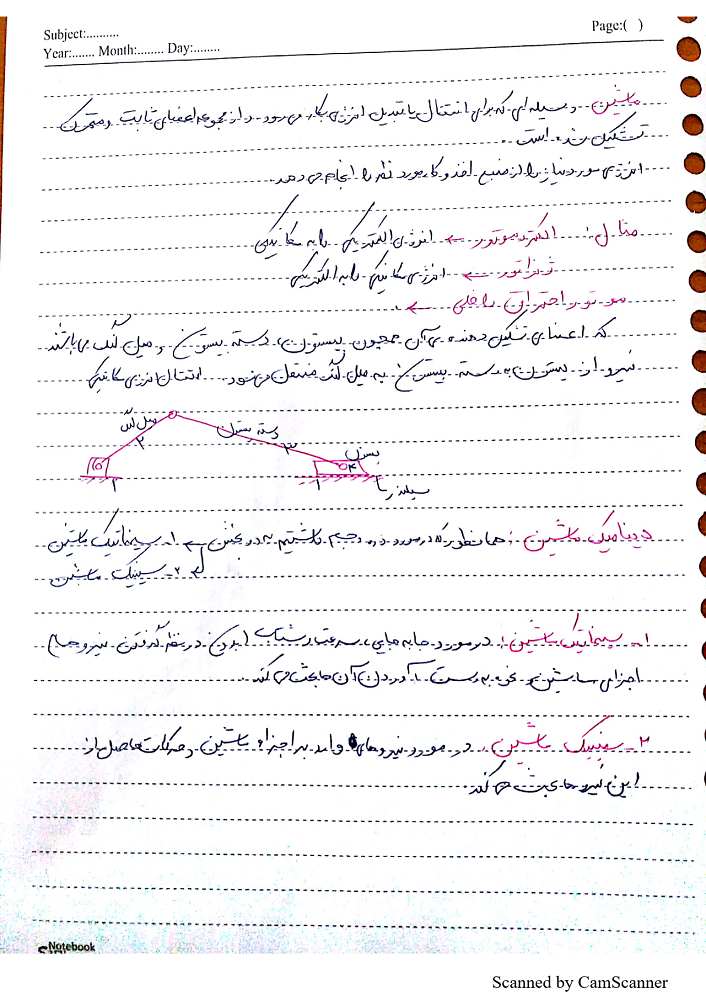 Subject:..........
Year:....... Month:........ Day:........
Page:( )
ماشین وسیله ای که برای انتقال یا تبدیل انرژی بکار می رود و از مجموعه اعضای ثابت و متحرک
تشکیل شده است.
انرژی مورد نیاز را از منبع اخذ و کار مورد نظر را انجام می دهد.
مثال: الکتروموتور ← انرژی الکتریکی را به مکانیکی
ژنراتور ← انرژی مکانیکی را به الکتریکی
موتور احتراق داخلی ←
که اعضای تشکیل دهنده ی آن همچون پیستون، دسته پیستون، میل لنگ می باشد
نیرو از پیستون به دسته پیستون به میل لنگ منتقل می شود. انتقال انرژی مکانیکی
میل لنگ
۲
دسته پیستون
۳
پیستون
۴
۱
۱
سیلندر یا
دینامیک ماشین: همانطور که در مورد جسم داشتیم به دو بخش ← ۱- سینماتیک ماشین
۲- سینتیک ماشین
۱- سینماتیک ماشین: در مورد جابه جایی، سرعت و شتاب (بدون در نظر گرفتن نیروها)
اجزای ماشین و نحوه بدست آوردن آن ها بحث می کند.
۲- سینتیک ماشین: در مورد نیروهای وارد بر اجزاء ماشین و حرکات حاصل از
این نیروها بحث می کند
Notebook
Scanned by CamScanner